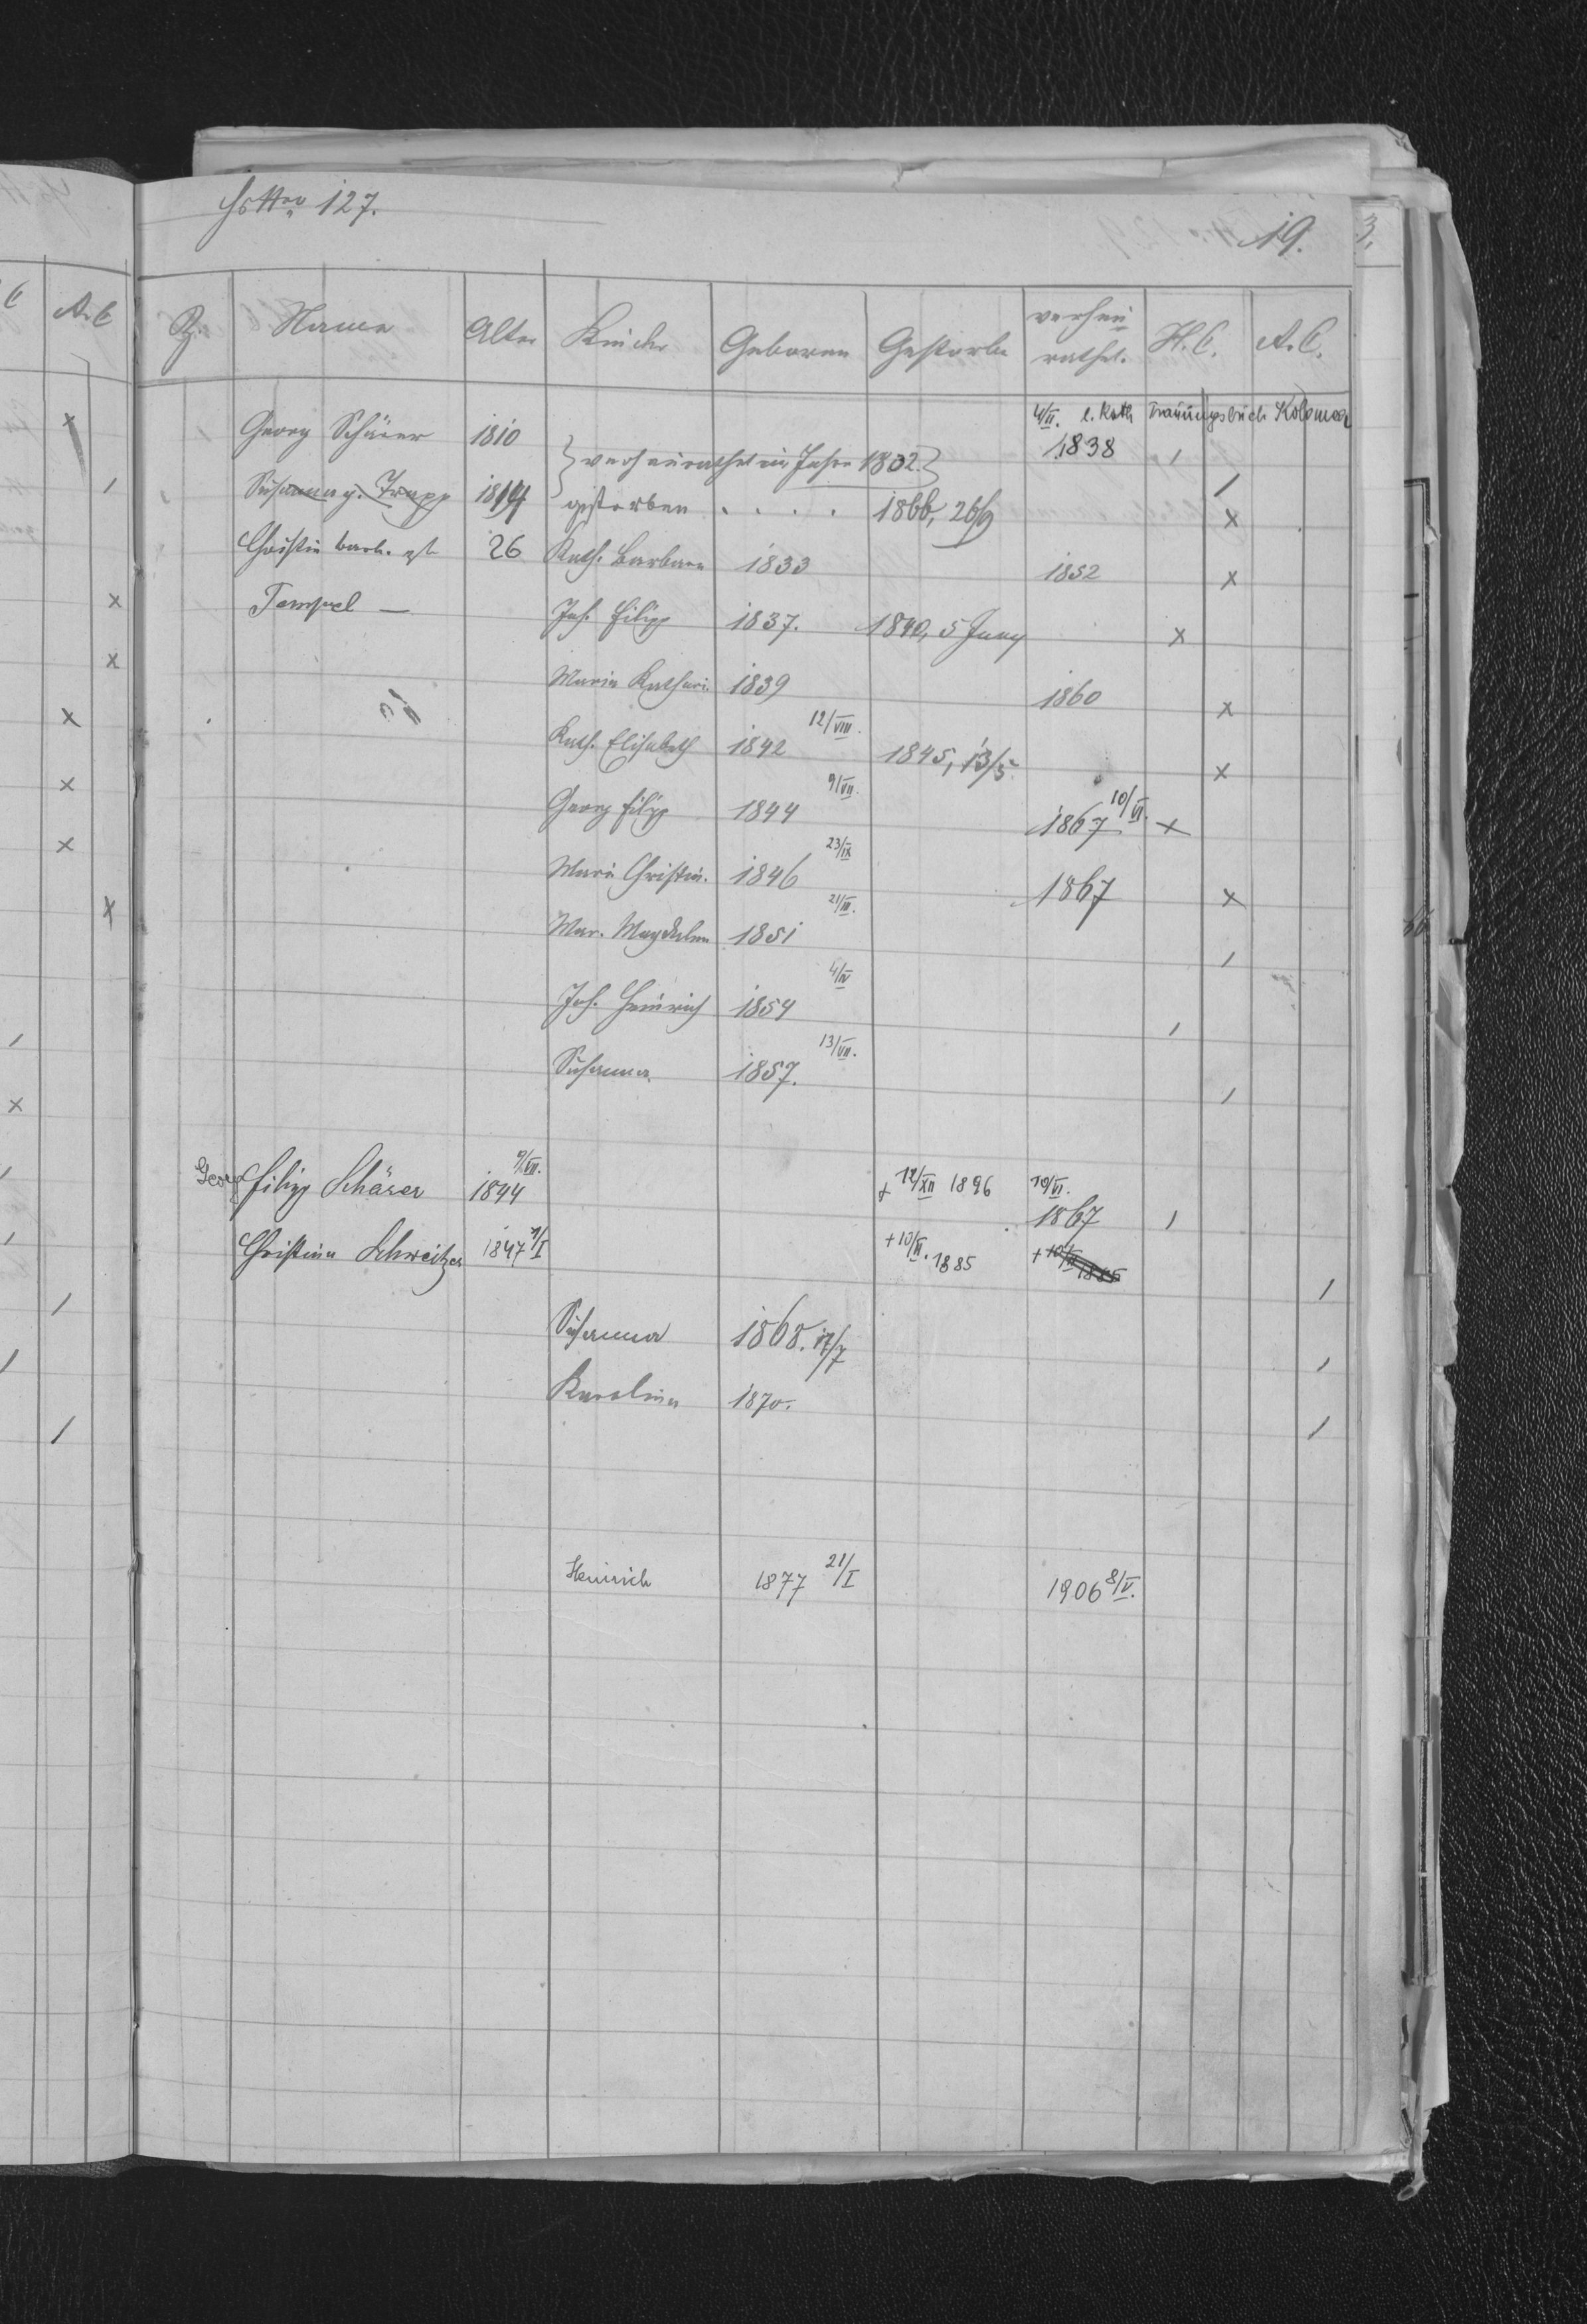 127.
19.
3,
C
A. C
Z.
Name
Alter
Kinder
Geboren
Gestorben
verhei-
rathet.
H. C.
A. C.
Georg Schärer 1810
4/II. l. Kath Trauungsbuch Kolomea
1838
verheirathet im Jahre 1832.
Susanna g. Trapp 1814 gestorben . . . . 1866, 26/9 x
Christin 26 Kath. Barbara 1833 1852 x
Tempel — Joh. Filipp 1837. 1840, 5 Juny x
Maria Kathari. 1839 1860 x
Kath. Elisabeth 1842 12/VIII. 1845, 13/5 x
Georg Filipp 1844 9/VII. 1867 10/VI. x
Maria Christin. 1846 23/IX 1867 x
Mar. Magdalena 1851 21/III.
Joh. Heinrich 1854 4/IV
Susanna 1857. 13/VII.
Georg Filipp Schärer 1844 9/VII. + 12/XII 1896 10/VI. 1867
Christina Schweitzer 1847 1/I + 10/II. 1885 + 10/II 1885
Susanna 1868. 17/7
Karolina 1870.
Heinrich 1877 21/I 1906 8/V.